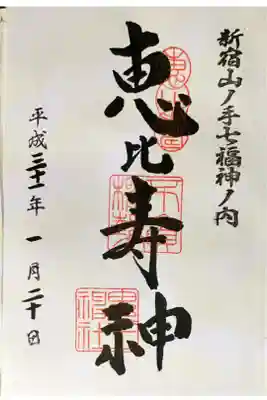 新宿山ノ手七福神ノ内
恵比寿神
平成三十一年一月二十日